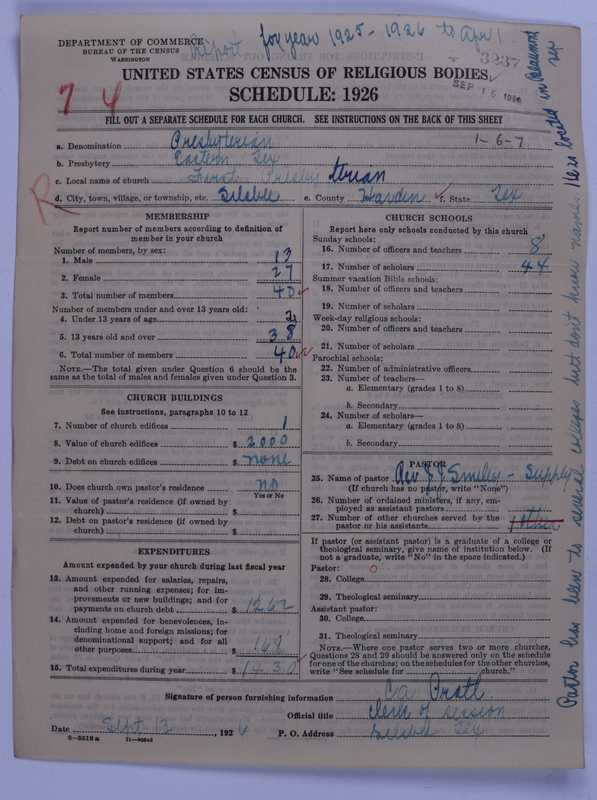 DEPARTMENT OF COMMERCE
BUREAU OF THE CENSUS
WASHINGTON
Report for year 1925-1926 to Apr 1
3237
SEP 15 1926
UNITED STATES CENSUS OF RELIGIOUS BODIES
SCHEDULE: 1926
7 4
FILL OUT A SEPARATE SCHEDULE FOR EACH CHURCH. SEE INSTRUCTIONS ON THE BACK OF THIS SHEET
1-6-7
a. Denomination Presbyterian
b. Presbytery Eastern Tex
c. Local name of church First Presbyterian
R
d. City, town, village, or township, etc. Silsbee e. County Hardin f. State Tex
MEMBERSHIP
Report number of members according to definition of member in your church
Number of members, by sex:
1. Male 13
2. Female 27
3. Total number of members 40
Number of members under and over 13 years old:
4. Under 13 years of age 2
5. 13 years old and over 38
6. Total number of members 40
NOTE.—The total given under Question 6 should be the same as the total of males and females given under Question 3.
CHURCH BUILDINGS
See instructions, paragraphs 10 to 12
7. Number of church edifices 1
8. Value of church edifices $ 2000
9. Debt on church edifices $ none
10. Does church own pastor's residence no
Yes or No
11. Value of pastor's residence (if owned by church) $
12. Debt on pastor's residence (if owned by church) $
EXPENDITURES
Amount expended by your church during last fiscal year
13. Amount expended for salaries, repairs, and other running expenses; for improvements or new buildings; and for payments on church debt $ 1262
14. Amount expended for benevolences, including home and foreign missions; for denominational support; and for all other purposes $ 168
15. Total expenditures during year $ 1430
CHURCH SCHOOLS
Report here only schools conducted by this church
Sunday schools:
16. Number of officers and teachers 8
17. Number of scholars 44
Summer vacation Bible schools:
18. Number of officers and teachers
19. Number of scholars
Week-day religious schools:
20. Number of officers and teachers
21. Number of scholars
Parochial schools:
22. Number of administrative officers
23. Number of teachers—
a. Elementary (grades 1 to 8)
b. Secondary
24. Number of scholars—
a. Elementary (grades 1 to 8)
b. Secondary
PASTOR
25. Name of pastor Rev J J Smiley - Supply
(If church has no pastor, write "None")
26. Number of ordained ministers, if any, employed as assistant pastors
27. Number of other churches served by the pastor or his assistants 1 other
If pastor (or assistant pastor) is a graduate of a college or theological seminary, give name of institution below. (If not a graduate, write "No" in the space indicated.)
Pastor: 0
28. College
29. Theological seminary
Assistant pastor:
30. College
31. Theological seminary
NOTE.—Where one pastor serves two or more churches, Questions 28 and 29 should be answered only on the schedule for one of the churches; on the schedules for the other churches, write "See schedule for church."
Signature of person furnishing information Ca Pratt
Official title Clerk of session
Date Sept 13, 1926 P. O. Address Silsbee Tex
8—5518a
Pastor has been to several colleges but don't know names He is located in Beaumont Tex